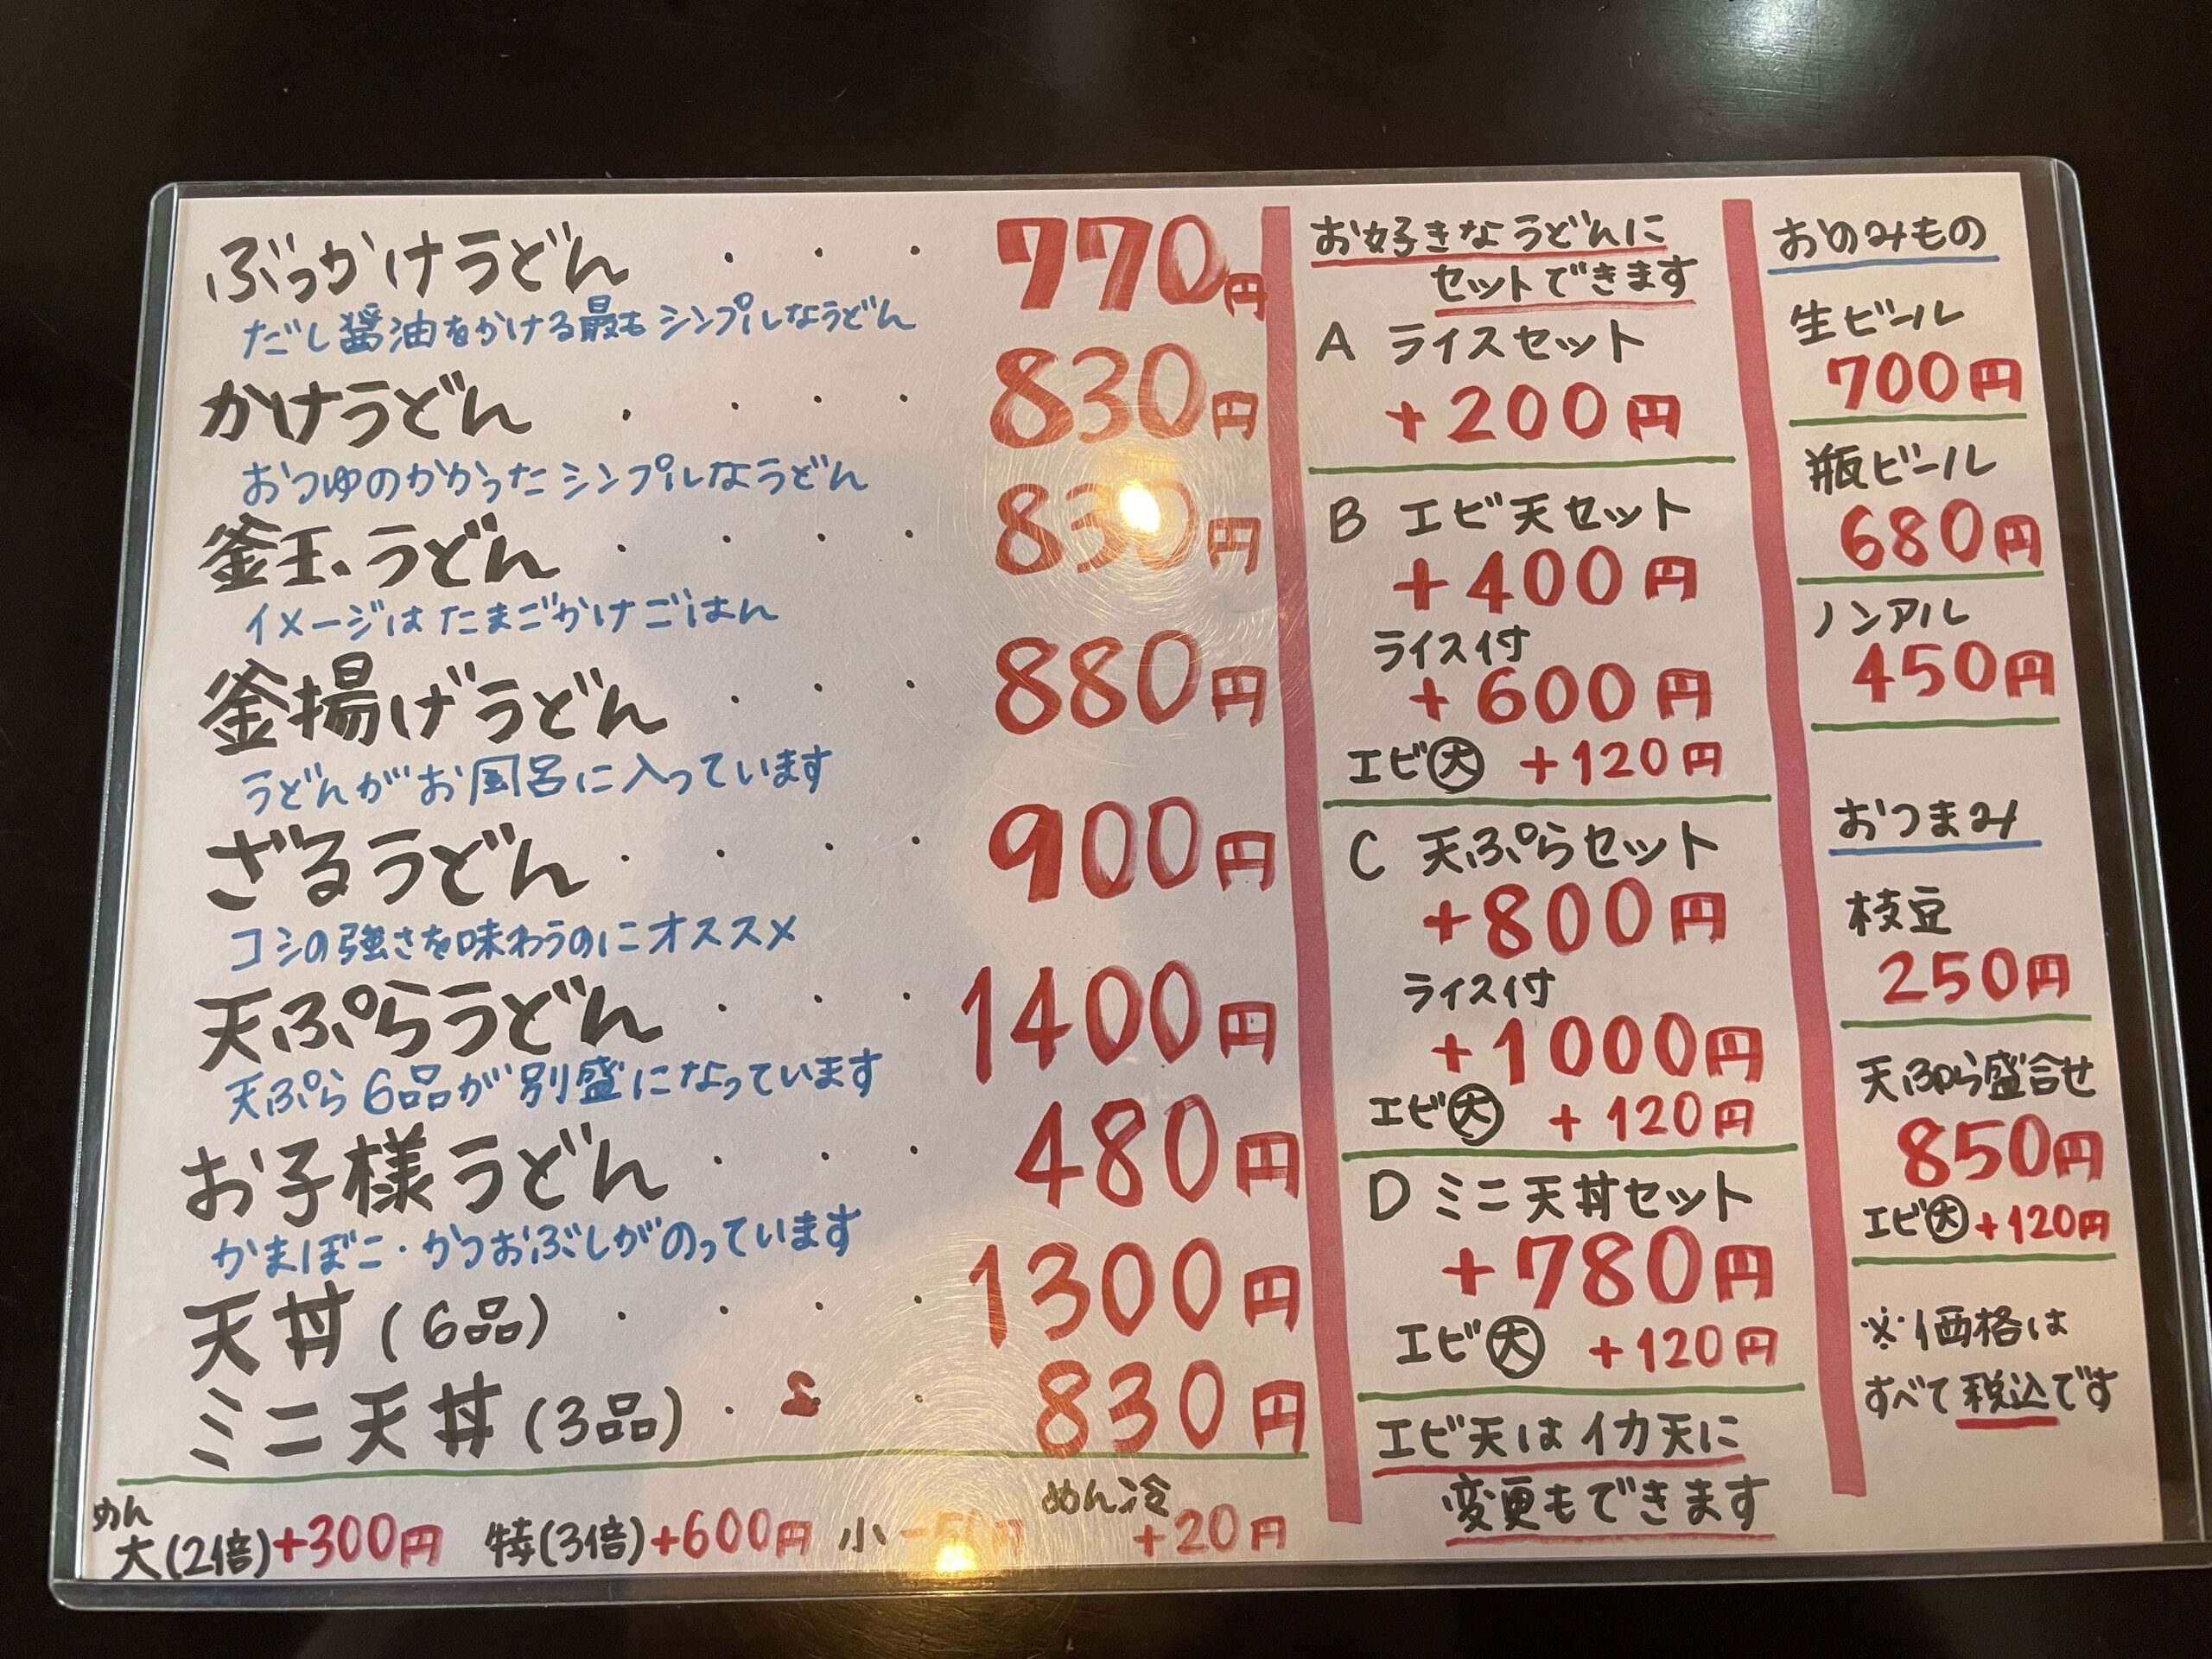 ぶっかけうどん ・・・ 770円
だし醤油をかける最もシンプルなうどん
かけうどん ・・・・ 830円
おつゆのかかったシンプルなうどん
釜玉うどん ・・・・ 830円
イメージはたまごかけごはん
釜揚げうどん ・・・ 880円
うどんがお風呂に入っています
ざるうどん ・・・・ 900円
コシの強さを味わうのにオススメ
天ぷらうどん ・・・ 1400円
天ぷら6品が別盛になっています
お子様うどん ・・・ 480円
かまぼこ・かつおぶしがのっています
天丼(6品) ・・・・ 1300円
ミニ天丼(3品) ・ ・ 830円
めん
大(2倍)+300円 特(3倍)+600円 小-50円
めん冷
+20円
お好きなうどんに
セットできます
A ライスセット
+200円
B エビ天セット
+400円
ライス付
+600円
エビ大 +120円
C 天ぷらセット
+800円
ライス付
+1000円
エビ大 +120円
D ミニ天丼セット
+780円
エビ大 +120円
エビ天はイカ天に
変更もできます
おのみもの
生ビール
700円
瓶ビール
680円
ノンアル
450円
おつまみ
枝豆
250円
天ぷら盛合せ
850円
エビ大+120円
※価格は
すべて税込です